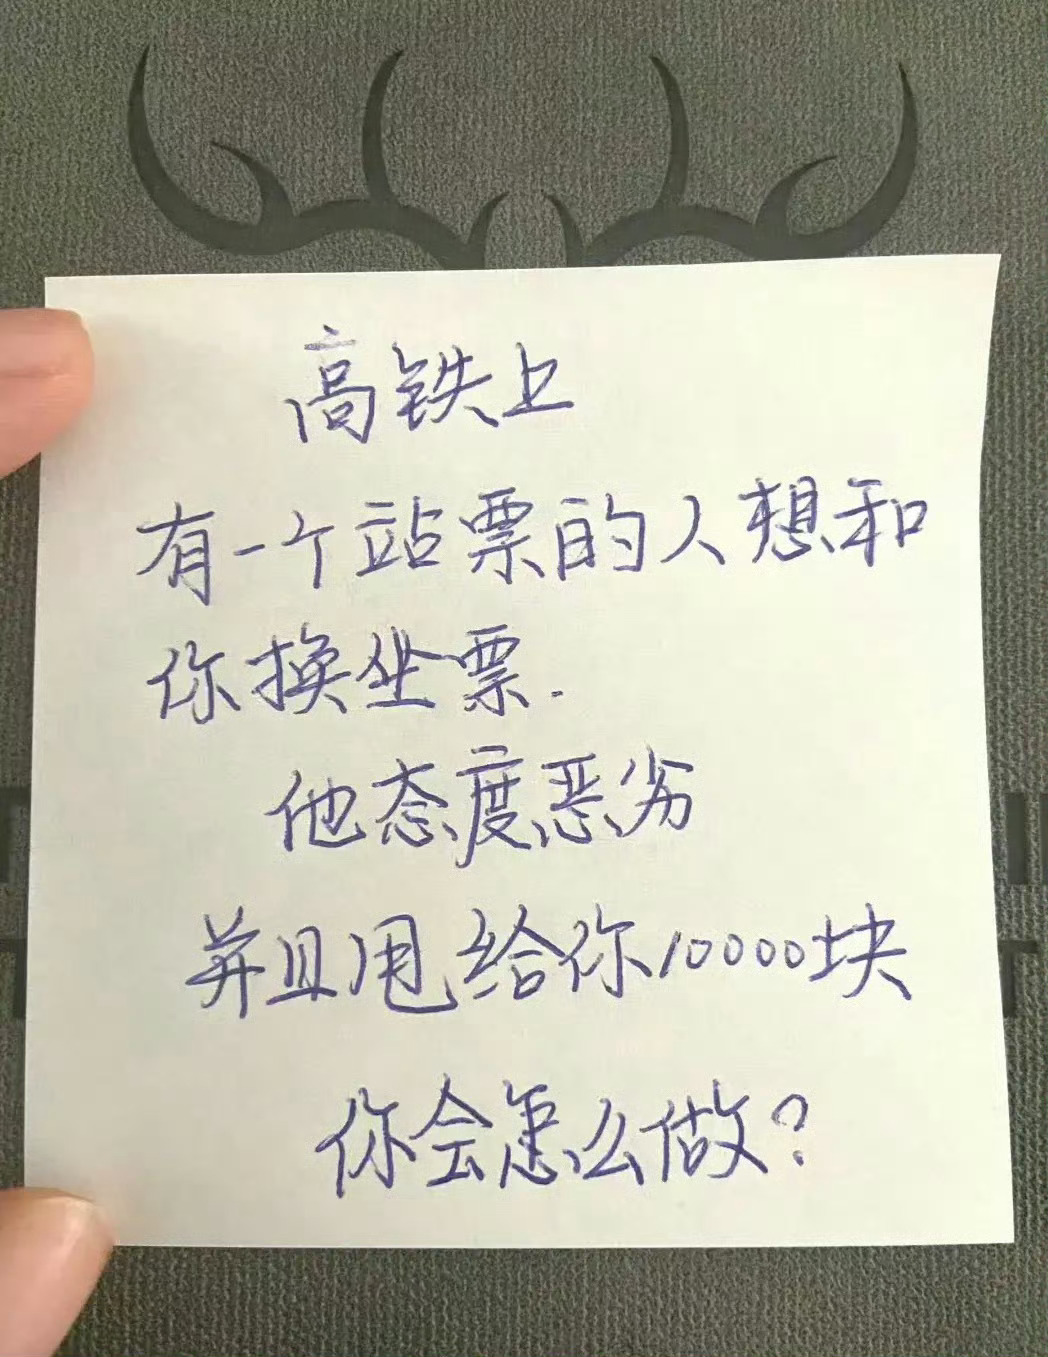 高铁上
有一个站票的人想和
你换坐票.
他态度恶劣
并且甩给你10000块
你会怎么做?